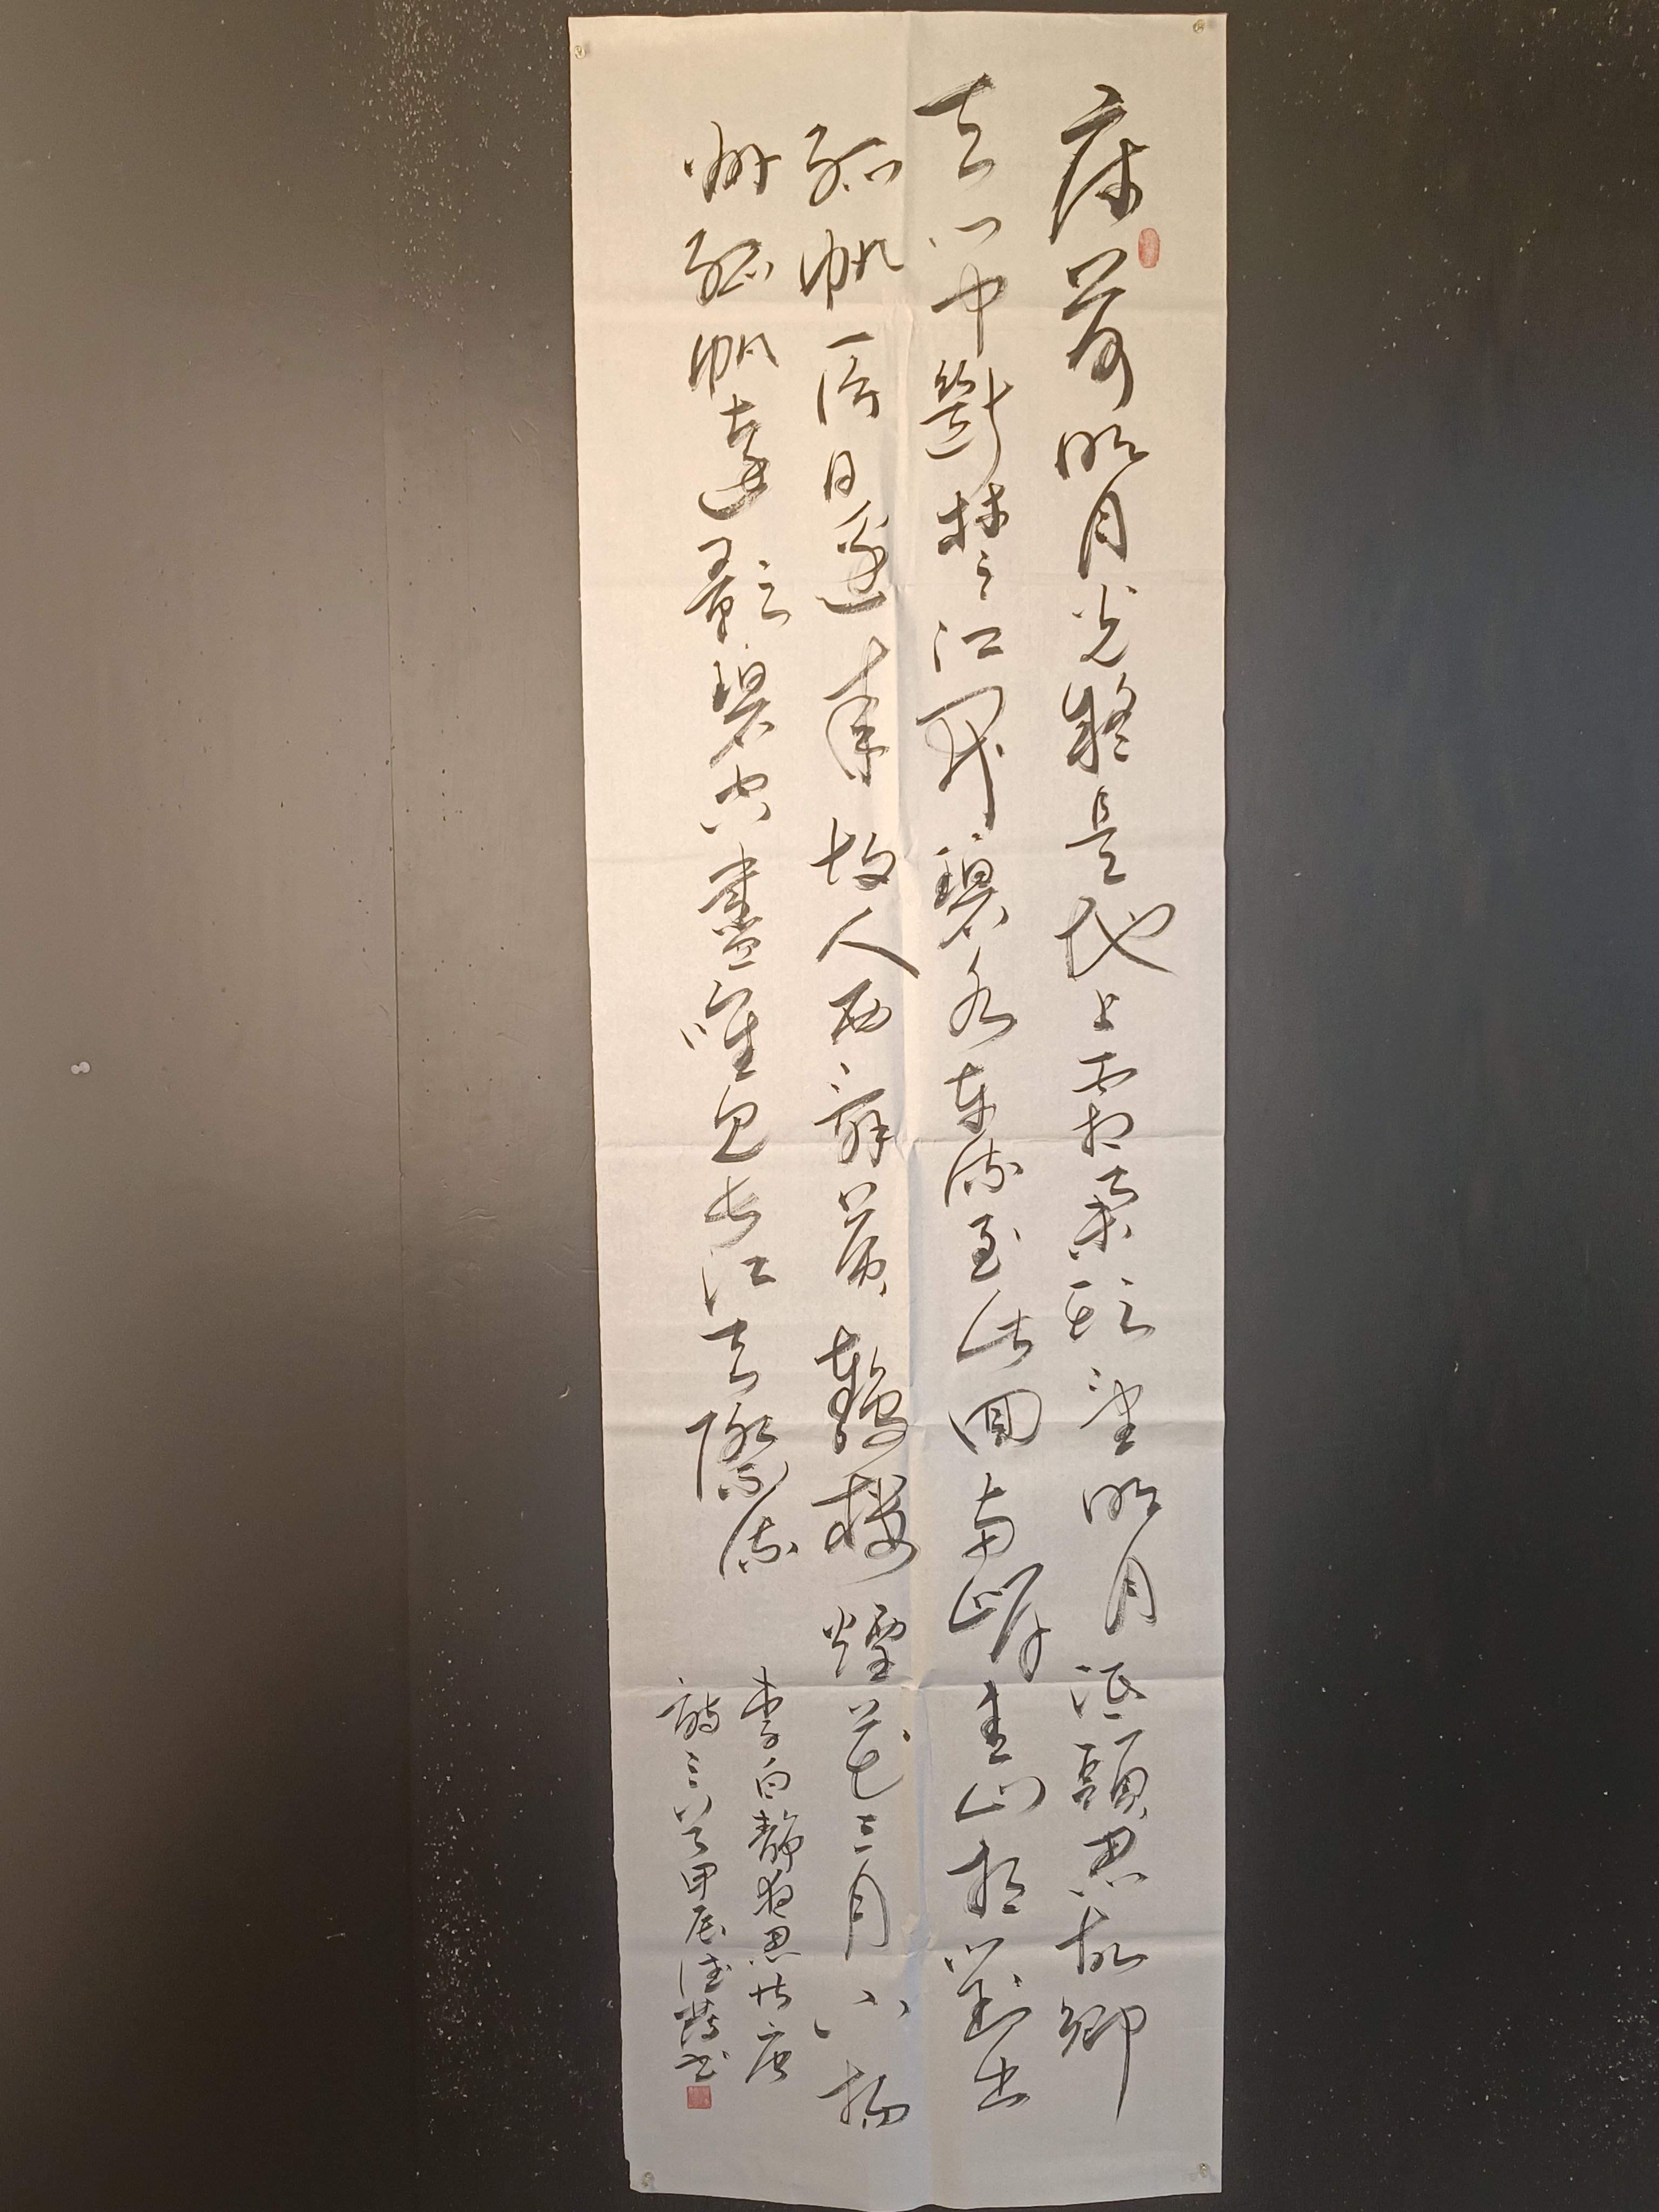 床前明月光疑是地上霜举头望明月低頭思故鄉
天门中斷楚江開碧水東流至此回兩岸青山相對出
孤帆一片日邊来故人西辞黄鶴楼煙花三月下揚
州孤帆遠影碧空盡唯見长江天際流
李白靜夜思等唐
詩三首甲辰